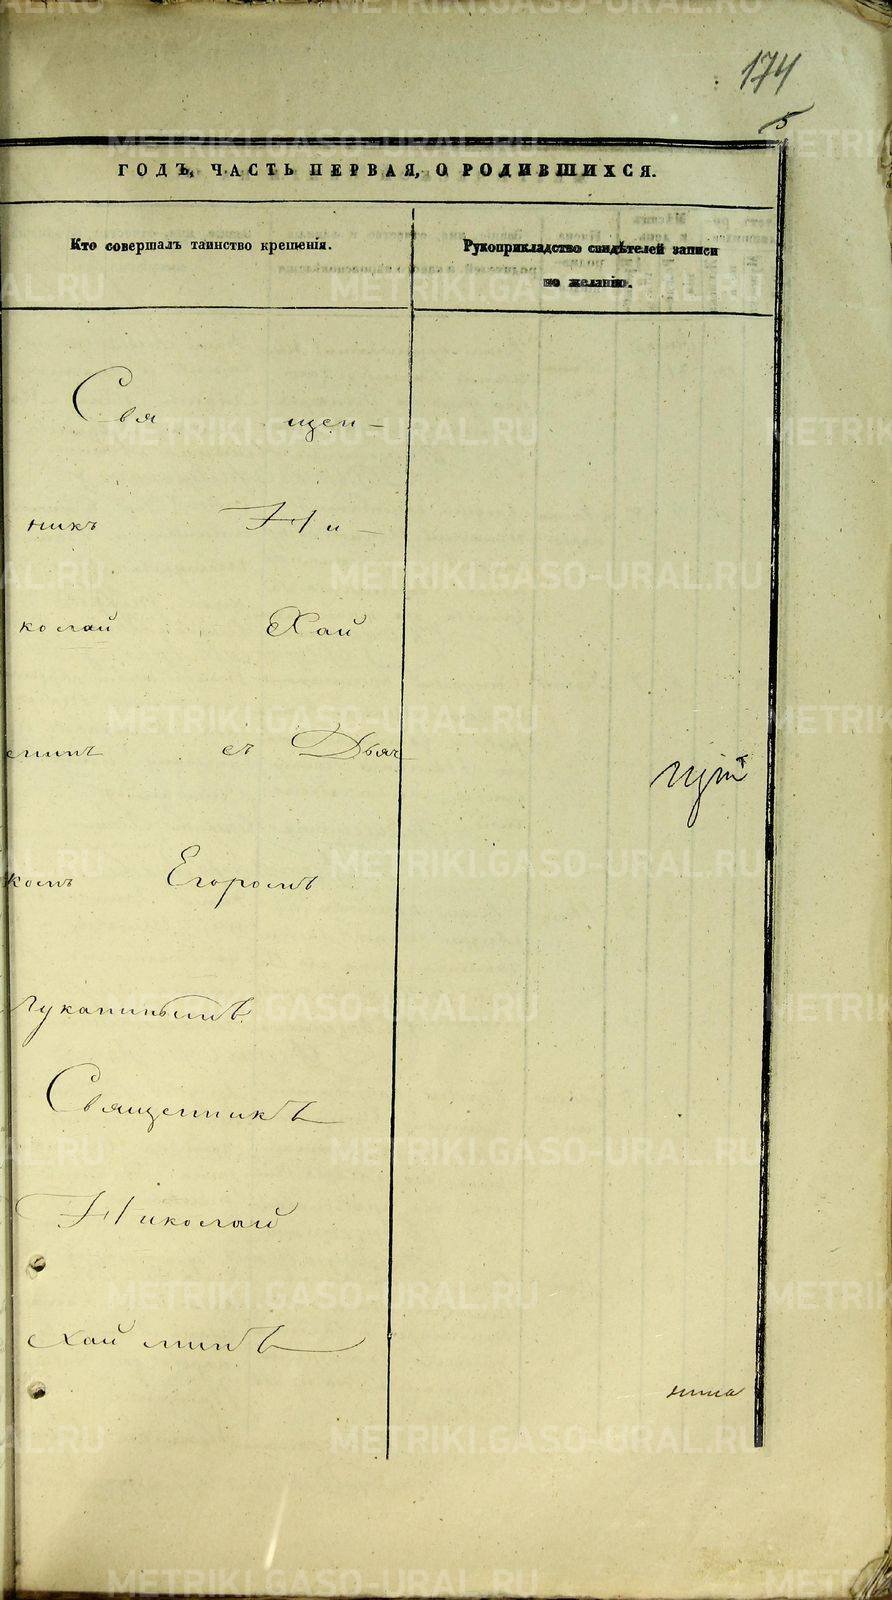 174
5
ГОДЪ, ЧАСТЬ ПЕРВАЯ, О РОДИВШИХСЯ.
Кто совершалъ таинство крещенія.
Рукоприкладство свидѣтелей записи
по желанію.
Свя щен-
никъ Ни-
колай Хай
минъ съ Дьяч
комъ Егоромъ
Лукаинымъ
Священникъ
Николай
Хайминъ
METRIKI.GASO-URAL.RU